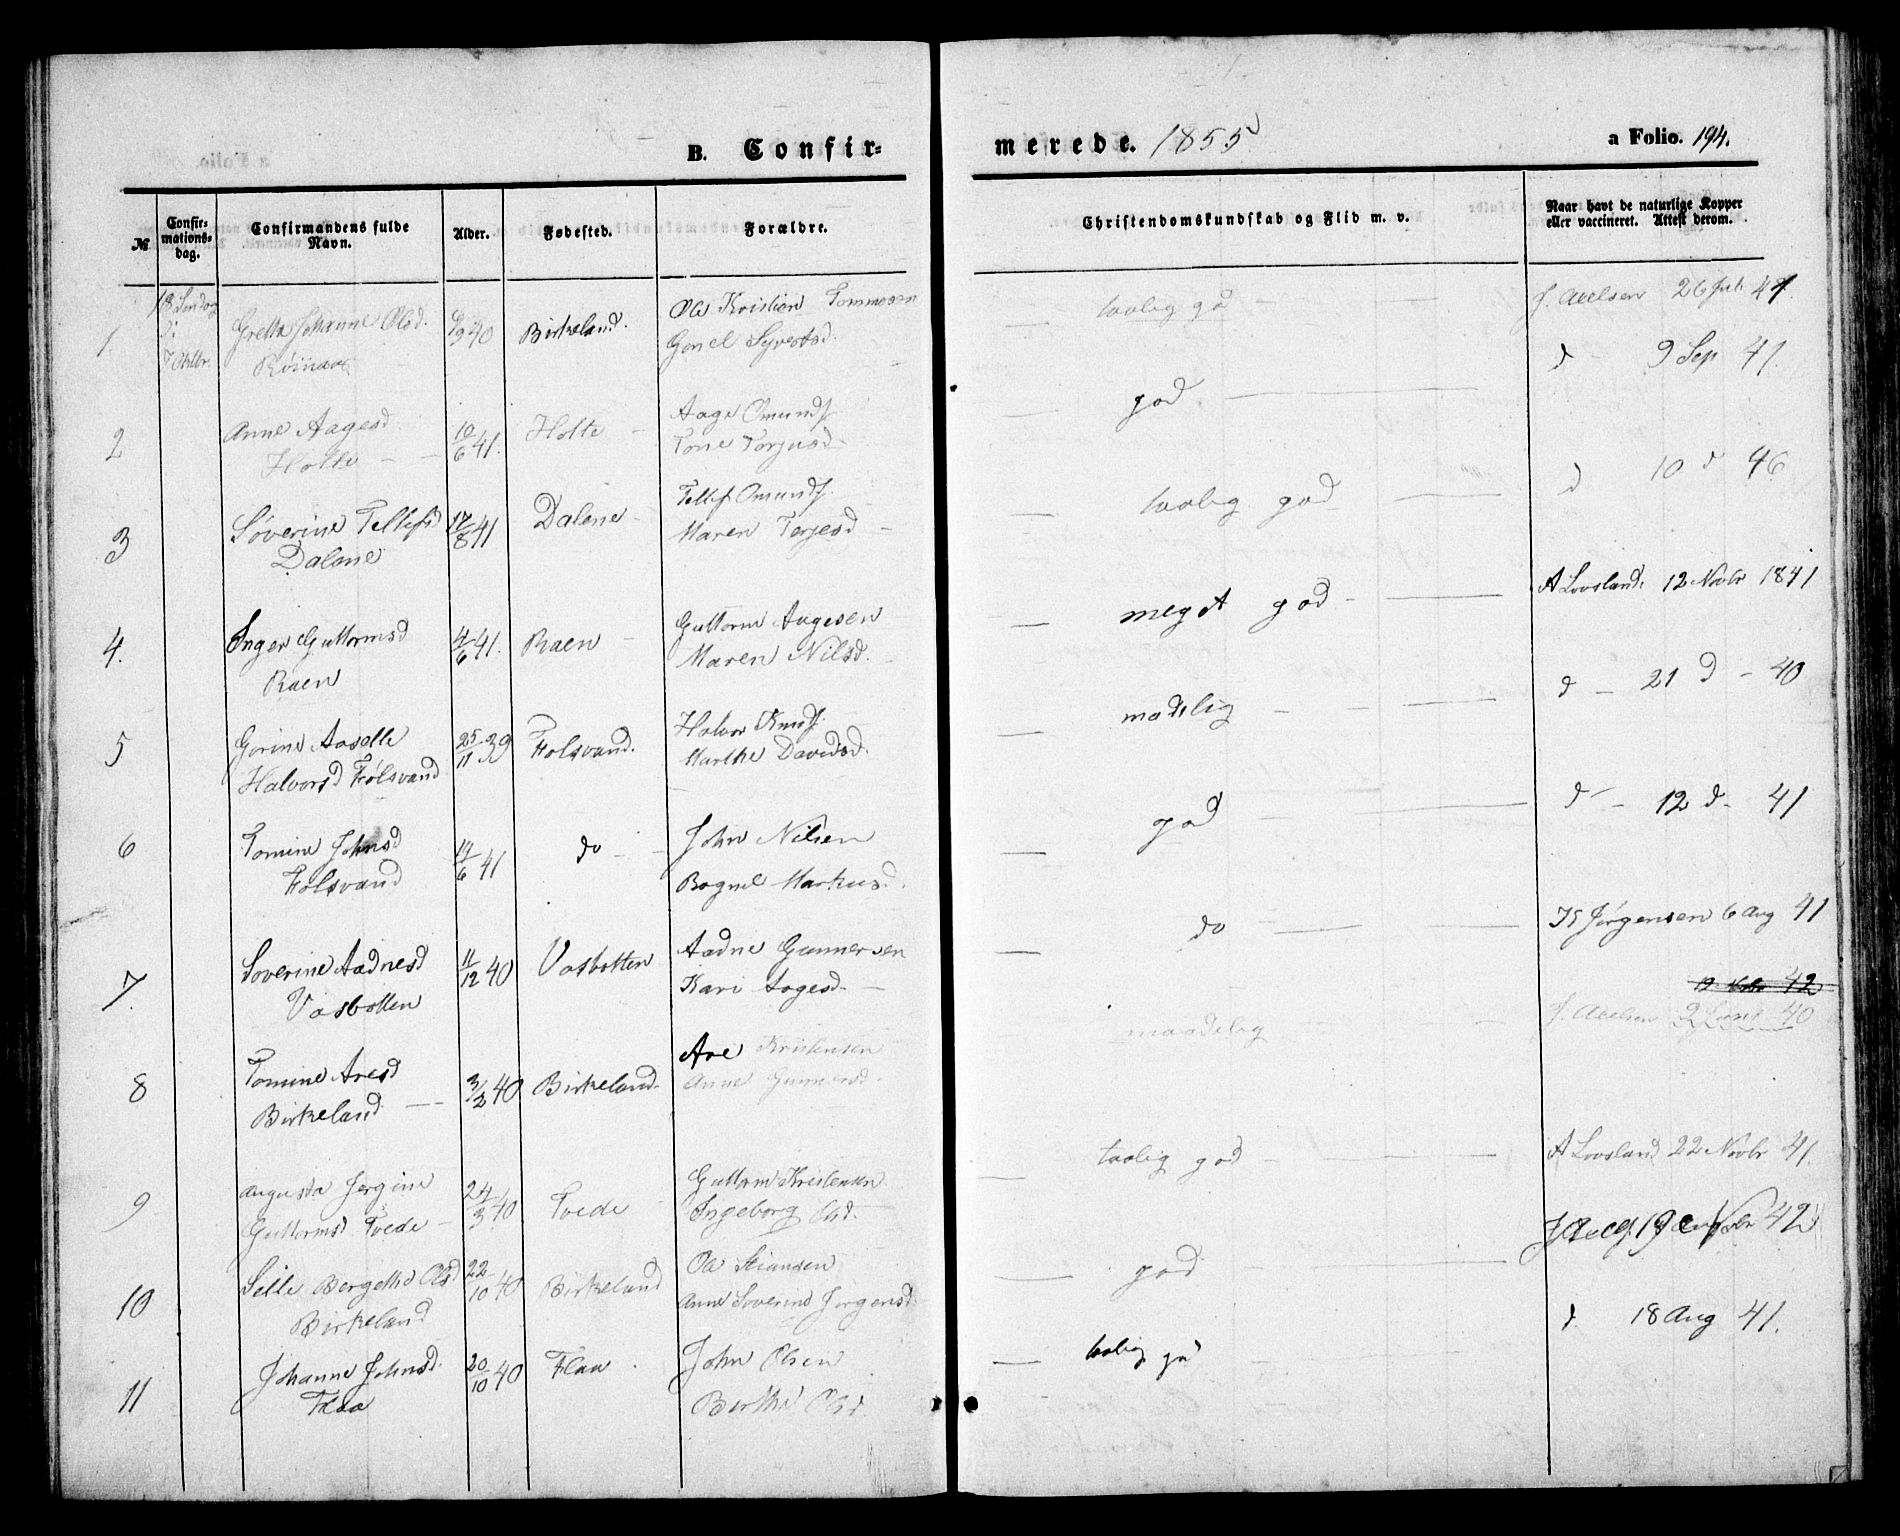 B. Confir-
merede. 1855
a Folio. 194.
№
Confir-
mations-
dag.
Confirmandens fulde
Navn.
Alder.
Fødested.
Forældre.
Christendomskundskab og Flid m. v.
Naar havt de naturlige Kopper
eller vaccineret. Attest derom.
1
18 Søndag
7 Oktbr.
Grethe Johanne Olsd.
6/9 40
Birkeland.
Ole Kristian Tommesen
Gonel Syvertsd.
taalig gd
J. Axelsen 26 Juli 41
2
Anne Aagesd
Holte
10/6 41.
Holte
Aage Omunds.
Tone Torjusd
god
d 9 Sep 41.
3
Søverine Tellefsd
Dalene
17/8 41
Dalene
Tellef Omunds.
Maren Terjesd
taalig god
d 10 d 46
4.
Inger Guttormsd
Raen
4/6 41.
Raen
Guttorm Aagesen
Maren Nilsd.
meget god
A Lovsland. 12 Novbr 1841
5
Gorine Aaselle
Halvorsd Følsvand
25/11 39
Følsvand.
Halvor Knuds.
Marthe Davidsd.
madelig
d - 21 d - 40
6
Tomine Johnsd
Følsvand
14/6 41
do
John Nilsen
Bognel Markusd.
god
d - 12 d - 41
7.
Soverine Aadnesd
Vasbotten
11/12 40
Vasbotten
Aadne Gunnersen
Kari Aagesd.
do
Jørgensen 6 Aug 41
8
Tomine Aresd
Birkeland
3/2 40
Birkeland.
Are Kristensen
Anne Gunnersd.
maadelig
19 Novbr 42
J. Axelsen 2 Juni 40
9
Augusta Jorgine
Guttormsd Tvede
24/3 40
Tvede
Guttorm Kristensen
Ingeborg Olsd.
taalig god
A Lovsland 22 Novbr 41.
10
Sille Bergethe Olsd
Birkeland
22/10 40
Birkeland
Ole Stiansen
Anne Soverine Jorgensd.
god
19 Novbr 42
11
Johanne Johnsd.
Flaa
20/10 40
Flaa
John Olsen
Berthe Olsd.
taalig gd
d 18 Aug 41.